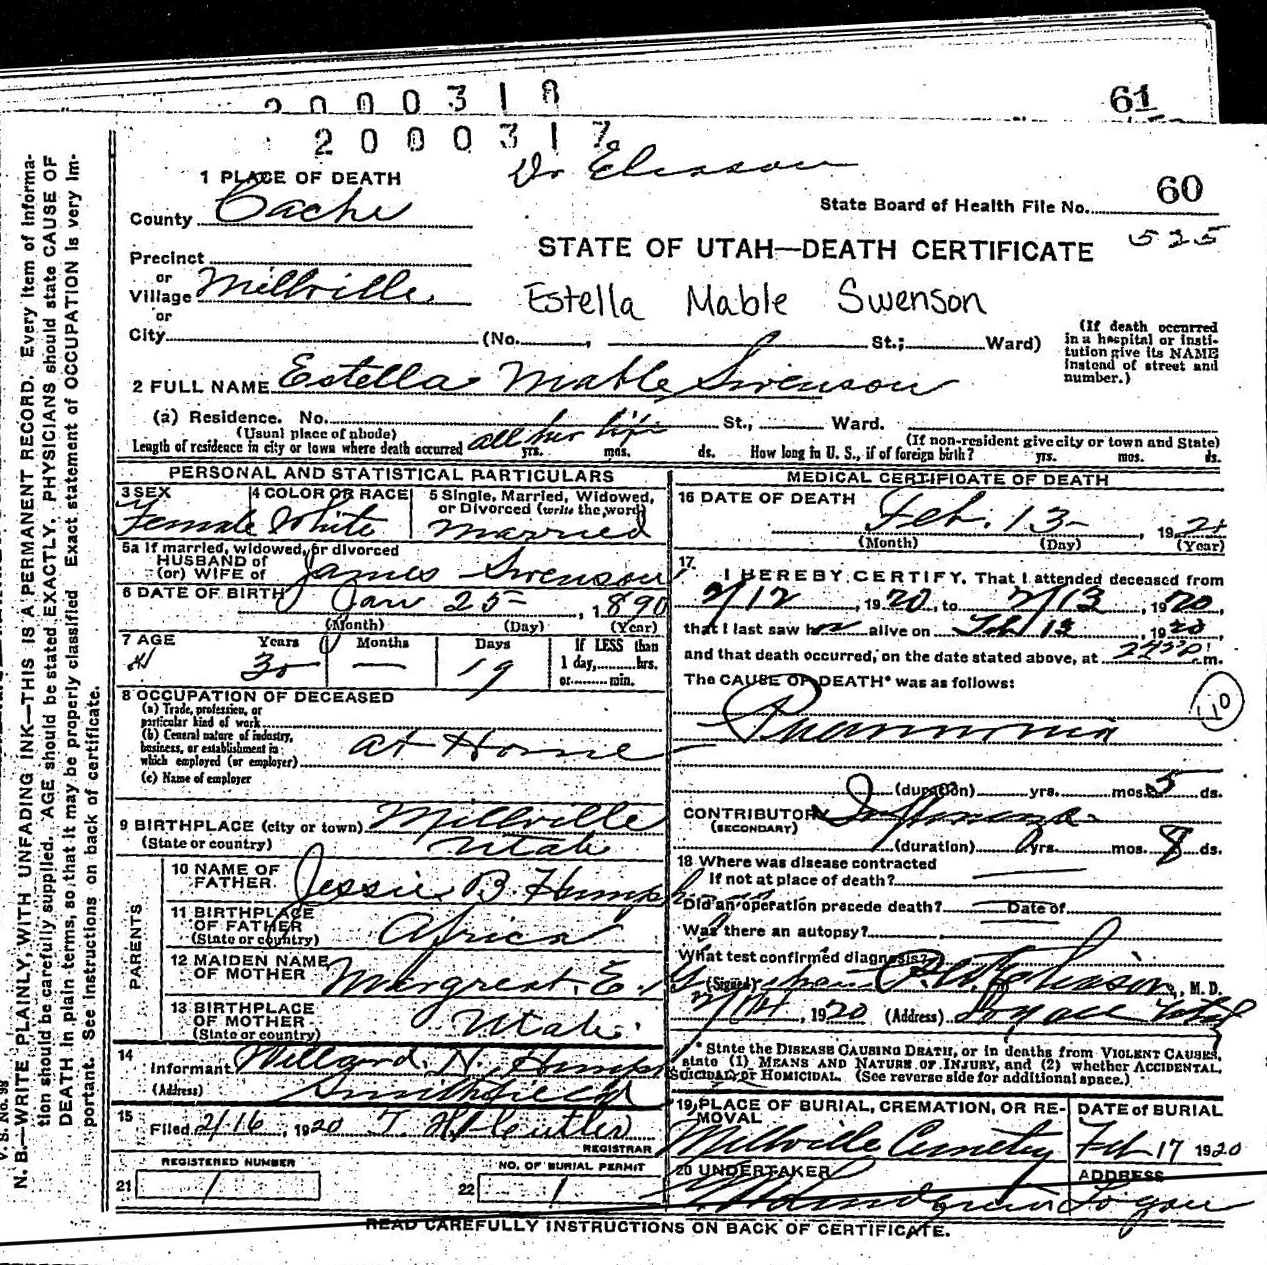 2000318
61
2000317
Dr Eliason
1 PLACE OF DEATH
County Cache
State Board of Health File No. 60
525
STATE OF UTAH—DEATH CERTIFICATE
Precinct
or
Village Millville
or
Estella Mable Swenson
City (No. , St.; Ward)
(If death occurred in a hospital or institution give its NAME instead of street and number.)
2 FULL NAME Estella Mable Swenson
(a) Residence. No. St., Ward.
(Usual place of abode)
(If non-resident give city or town and State)
Length of residence in city or town where death occurred all her life yrs. mos. ds. How long in U. S., if of foreign birth? yrs. mos. ds.
PERSONAL AND STATISTICAL PARTICULARS
3 SEX Female
4 COLOR OR RACE White
5 Single, Married, Widowed, or Divorced (write the word) married
5a If married, widowed, or divorced
HUSBAND of
(or) WIFE of James Swenson
6 DATE OF BIRTH Jan 25, 1890
(Month) (Day) (Year)
7 AGE Years 30 Months — Days 19
If LESS than
1 day, hrs.
or min.
8 OCCUPATION OF DECEASED
(a) Trade, profession, or
particular kind of work
(b) General nature of industry,
business, or establishment in
which employed (or employer) at Home
(c) Name of employer
9 BIRTHPLACE (city or town) Millville
(State or country) Utah
PARENTS
10 NAME OF FATHER Jessie B. Humph
11 BIRTHPLACE OF FATHER
(State or country) Africa
12 MAIDEN NAME OF MOTHER Margreat. E.
13 BIRTHPLACE OF MOTHER
(State or country) Utah
14
Informant Willard N. Humph
(Address) Smithfield
15
Filed 2/16, 1920 T. H. Cutler
REGISTRAR
REGISTERED NUMBER
21 1
NO. OF BURIAL PERMIT
22 1
MEDICAL CERTIFICATE OF DEATH
16 DATE OF DEATH
Feb. 13, 192
(Month) (Day) (Year)
17
I HEREBY CERTIFY, That I attended deceased from
2/12, 1920, to 2/13, 1920,
that I last saw her alive on Feb 13, 1920,
and that death occurred, on the date stated above, at m.
The CAUSE OF DEATH* was as follows:
110
Pneumonia
(duration) yrs. mos. 5 ds.
CONTRIBUTORY Influenza
(SECONDARY)
(duration) yrs. mos. 8 ds.
18 Where was disease contracted
if not at place of death?
Did an operation precede death? Date of
Was there an autopsy?
What test confirmed diagnosis?
(Signed) Eliason, M. D.
2/14, 1920 (Address) Logan Utah
* State the DISEASE CAUSING DEATH, or in deaths from VIOLENT CAUSES,
state (1) MEANS AND NATURE OF INJURY, and (2) whether ACCIDENTAL,
SUICIDAL, or HOMICIDAL. (See reverse side for additional space.)
19 PLACE OF BURIAL, CREMATION, OR REMOVAL
Millville Cemetery
DATE of BURIAL
Feb 17 1920
20 UNDERTAKER
ADDRESS
Logan
READ CAREFULLY INSTRUCTIONS ON BACK OF CERTIFICATE.
V. S. No. 98
N. B.—WRITE PLAINLY, WITH UNFADING INK—THIS IS A PERMANENT RECORD. Every item of information
should be carefully supplied. AGE should be stated EXACTLY. PHYSICIANS should state CAUSE OF
DEATH in plain terms, so that it may be properly classified. Exact statement of OCCUPATION is very important.
See instructions on back of certificate.